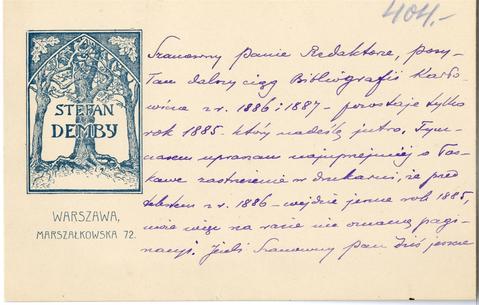 404.-
STEFAN
DEMBY
WARSZAWA,
MARSZAŁKOWSKA 72.
Szanowny Panie Redaktorze, posy-
łam dalszy ciąg Bibliografii Karło-
wicza z r. 1886 i 1887 – pozostaje tylko
rok 1885, który nadeślę jutro. Tym-
czasem upraszam najuprzejmiej o łas-
kawe zastrzeżenie w drukarni, że przed
tekstem z r. 1886 – wejdzie jeszcze rok 1885,
więc na razie nie oznaczą pagi-
nacyi. Jeżeli Szanowny Pan dziś jeszcze